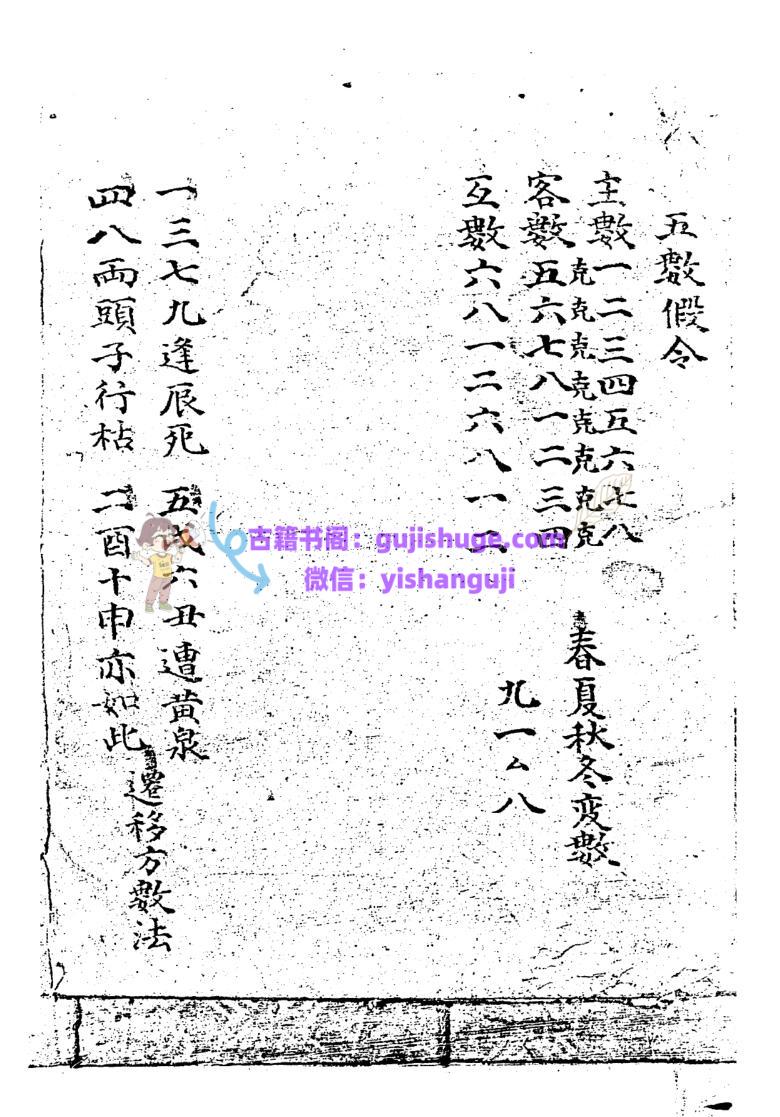 五數假令
主數一二三四五六七八
克克克克克克克克
客數五六七八一二三四
互數六八一二六八一二
春夏秋冬変數
九一厶八
一三七九逢辰死 五戌六丑遭黄泉
四八兩頭子行枯 二酉十申亦如此
遷移方數法
古籍书阁：gujishuge.com
微信：yishanguji